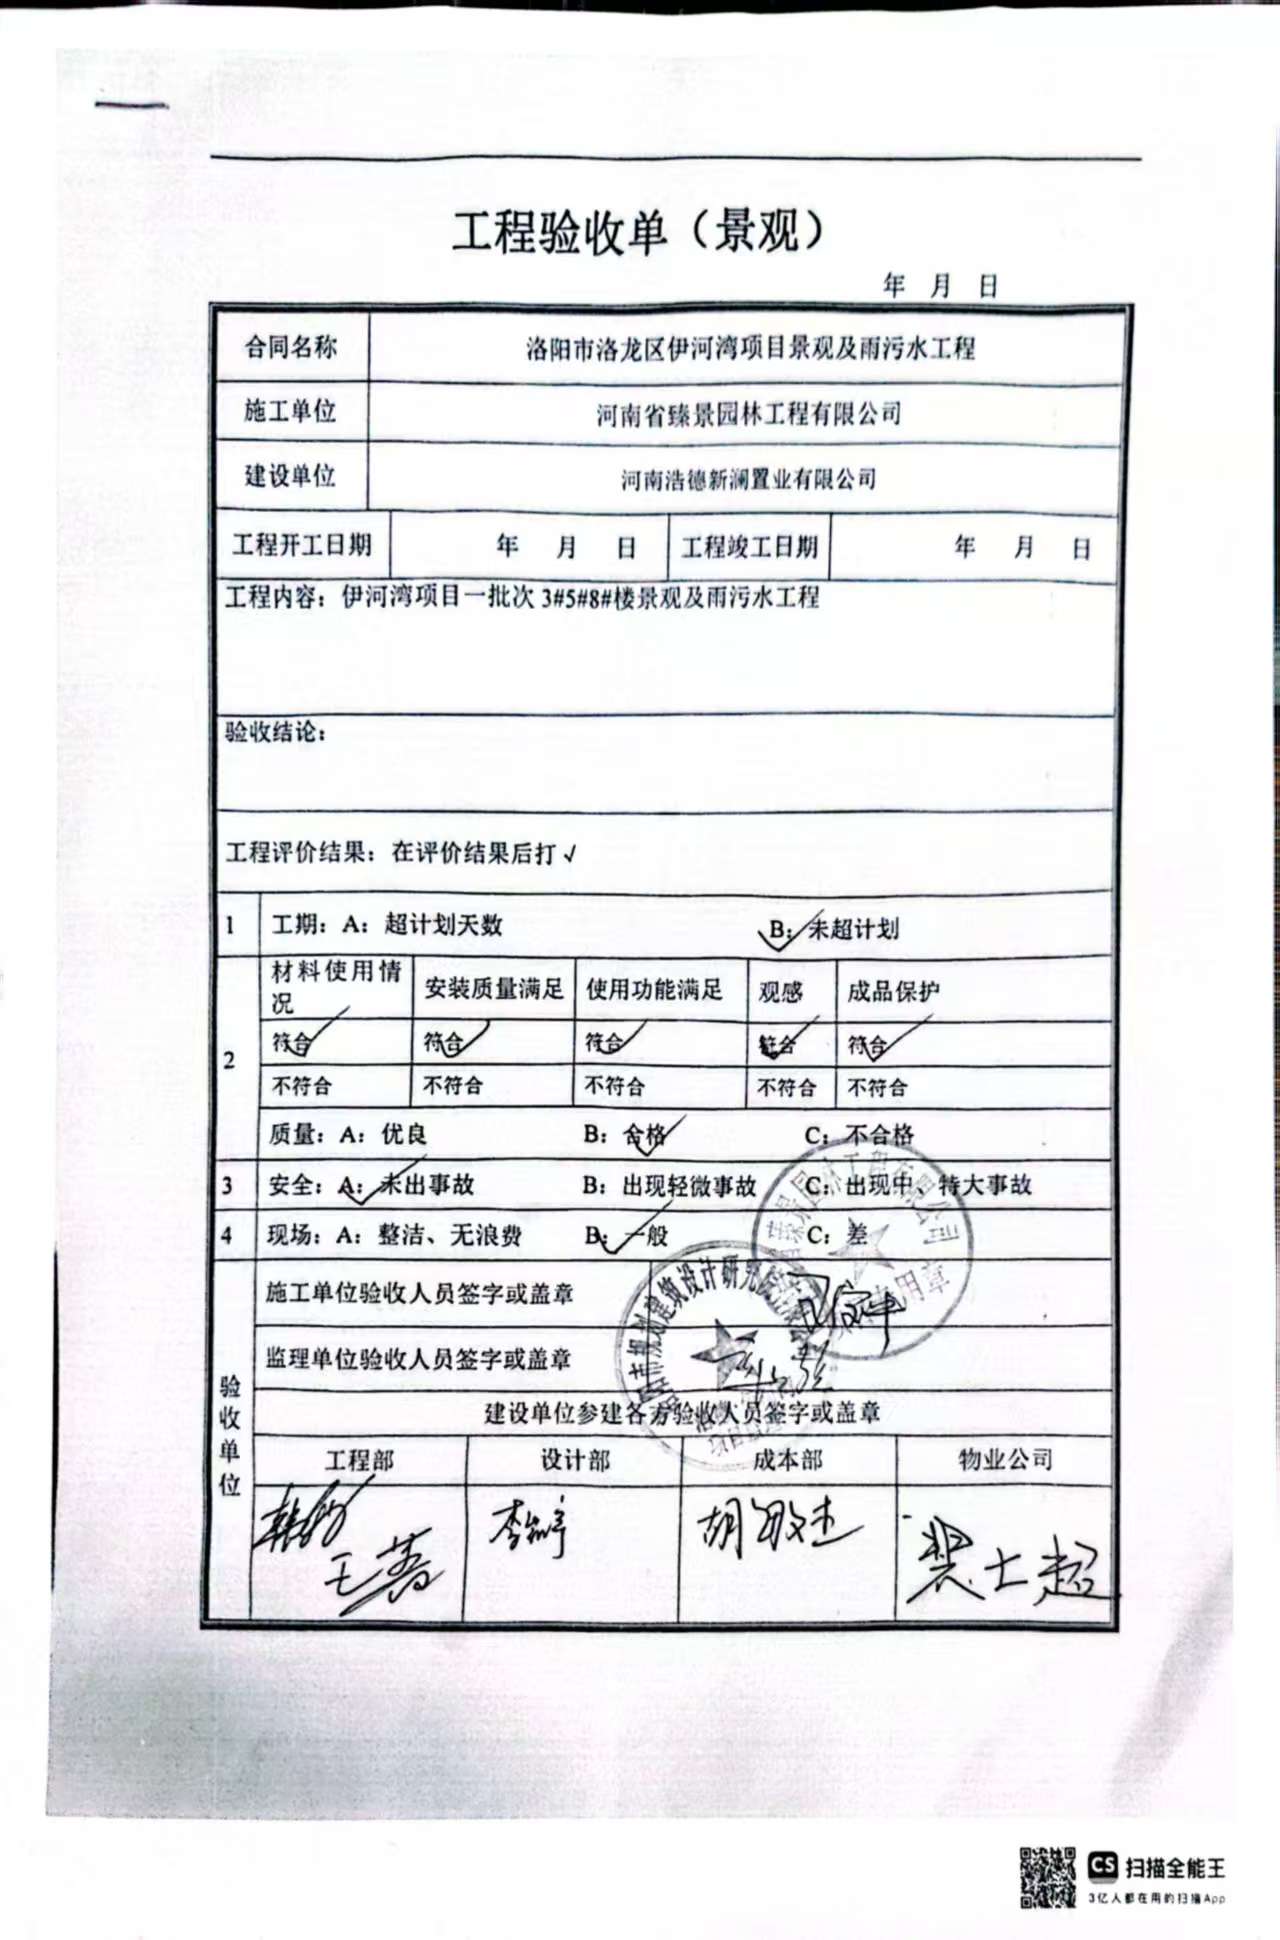 工程验收单（景观）
年 月 日
合同名称 洛阳市洛龙区伊河湾项目景观及雨污水工程
施工单位 河南省臻景园林工程有限公司
建设单位 河南浩德新澜置业有限公司
工程开工日期 年 月 日 工程竣工日期 年 月 日
工程内容：伊河湾项目一批次 3#5#8#楼景观及雨污水工程
验收结论：
工程评价结果：在评价结果后打√
1 工期：A：超计划天数 B：未超计划
2 材料使用情况 安装质量满足 使用功能满足 观感 成品保护
符合 符合 符合 符合 符合
不符合 不符合 不符合 不符合 不符合
质量：A：优良 B：合格 C：不合格
3 安全：A：未出事故 B：出现轻微事故 C：出现中、特大事故
4 现场：A：整洁、无浪费 B：一般 C：差
验收单位
施工单位验收人员签字或盖章
监理单位验收人员签字或盖章
建设单位参建各方验收人员签字或盖章
工程部 设计部 成本部 物业公司
胡敏杰 裴士超
规划建筑设计研究
景园林工程有限公司
用章
CS 扫描全能王
3亿人都在用的扫描App